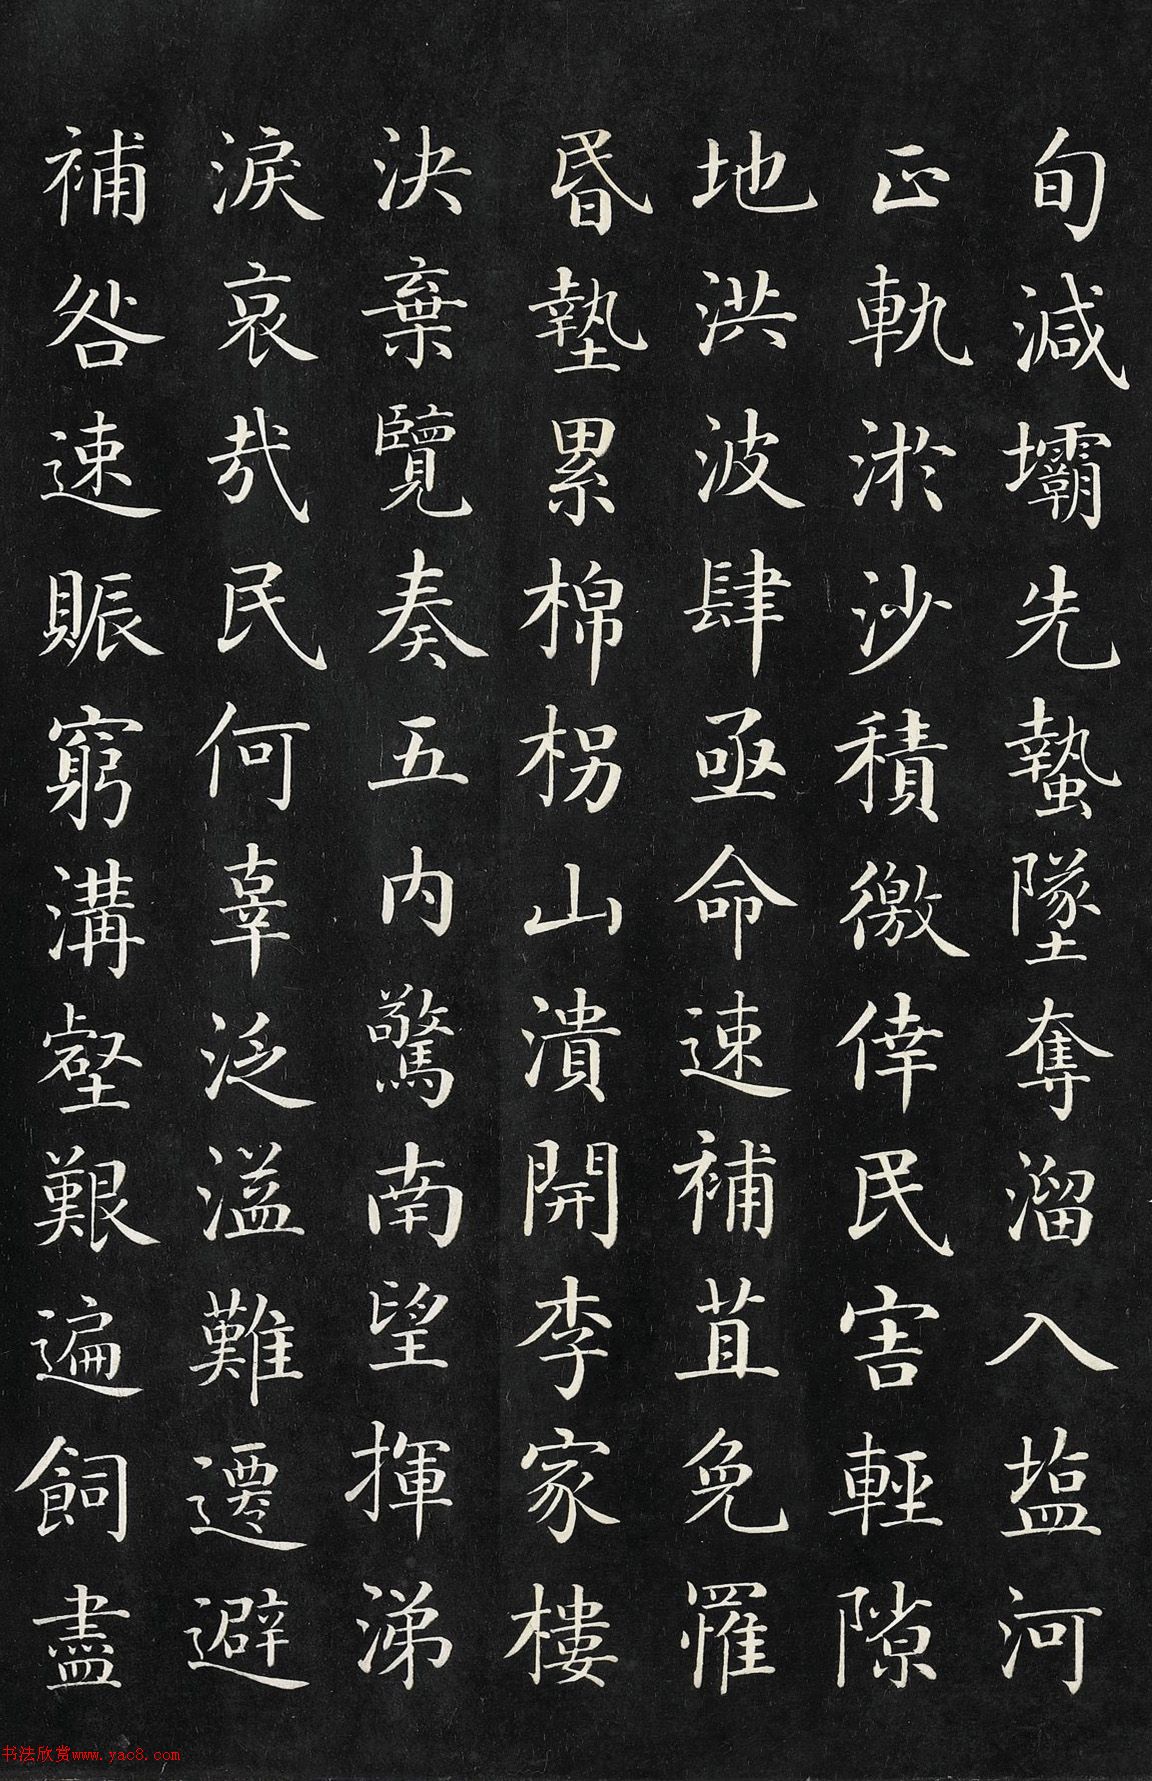 旬減壩先蟄墜奪溜入塩河
正軌淤沙積徼倖民害輕隙
地洪波肆亟命速補苴免罹
昬墊累棉柺山潰開李家樓
決棄覽奏五內驚南望揮涕
淚哀哉民何辜泛溢難遷避
補咎速賑窮溝壑艱遍飼盡
书法欣赏www.yac8.com